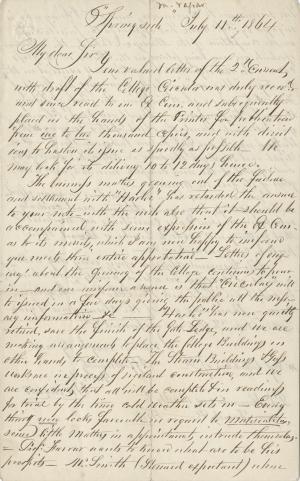 "Springside" July 11th 1864
My dear Sir
Your valued letter of the 2nd Current,
with draft of the College Circular was duly recd,
and since read to Ex Com. and subsequently
placed in the hands of the Printer for publication
from one to two thousand copies, and with direct
ions to hasten its issue as speedily as possible. We
may look for its delivery 10 to 12 days hence.
The business matters growing out of the failure
and settlement with "Harlow" has retarded the answer
to your note with the wish also that it should be
accompanied with some expression of the Ex Com.
as to its merits, which I am now happy to inform
you meets their entire approbation — Letters of enqu
iry about the opening of the College continue to pour
in — and our uniform answer is that "Circulars will
be issued in a few days giving the public all the neces
sary information" &c — "Harlow" has now quietly
retired, save the finish of the Gate Lodge, and we are
making arrangements to place the College Buildings in
other hands to complete — The Steam Buildings & Gass
works are in process of construction, and we
are confident, that all will be completed in readiness
for trial by the time cold weather sets in — Every
thing now looks favorable in regard to Materialities
some little matters in appointments, intrude themselves
— Prof. Farrar wants to know what are to be his
prospects — Mr. Smith (Steward expectant) whose